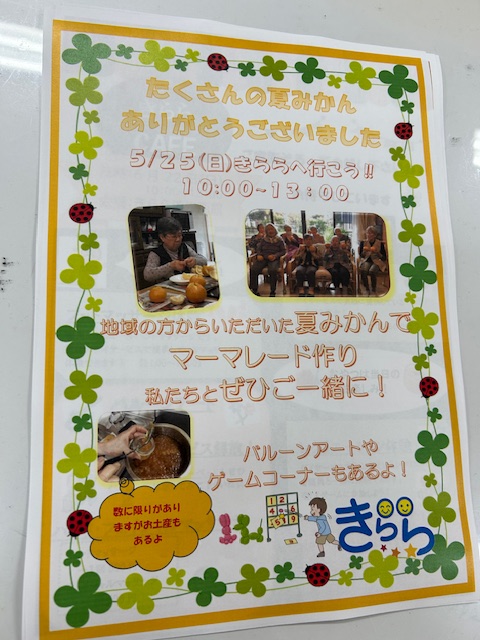 たくさんの夏みかん
ありがとうございました
5/25(日)きららへ行こう!!
10:00~13:00
地域の方からいただいた夏みかんで
マーマレード作り
私たちとぜひご一緒に！
バルーンアートや
ゲームコーナーもあるよ！
数に限りがあり
ますがお土産も
あるよ
きらら